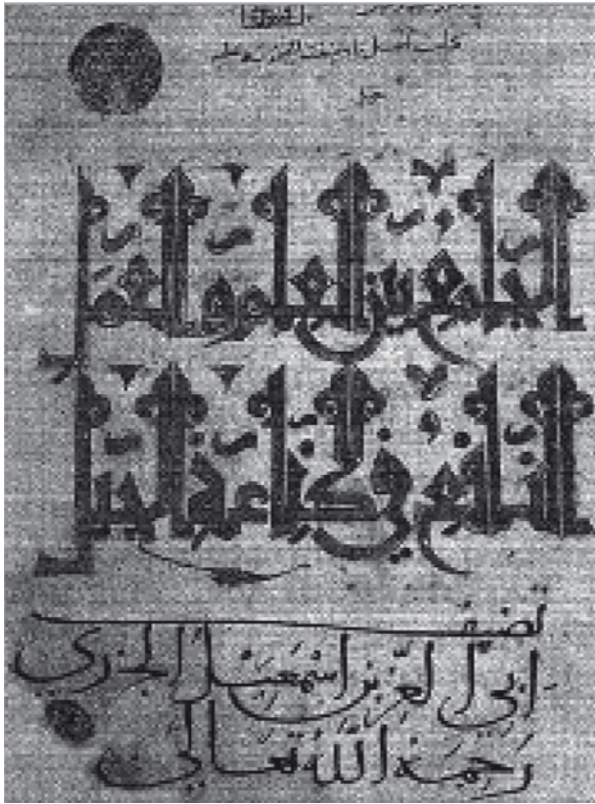 الجامع بين العلم والعمل
النافع في صناعة الحيل
تصنيف
ابي العز بن اسمعيل الجزري
رحمه الله تعالى